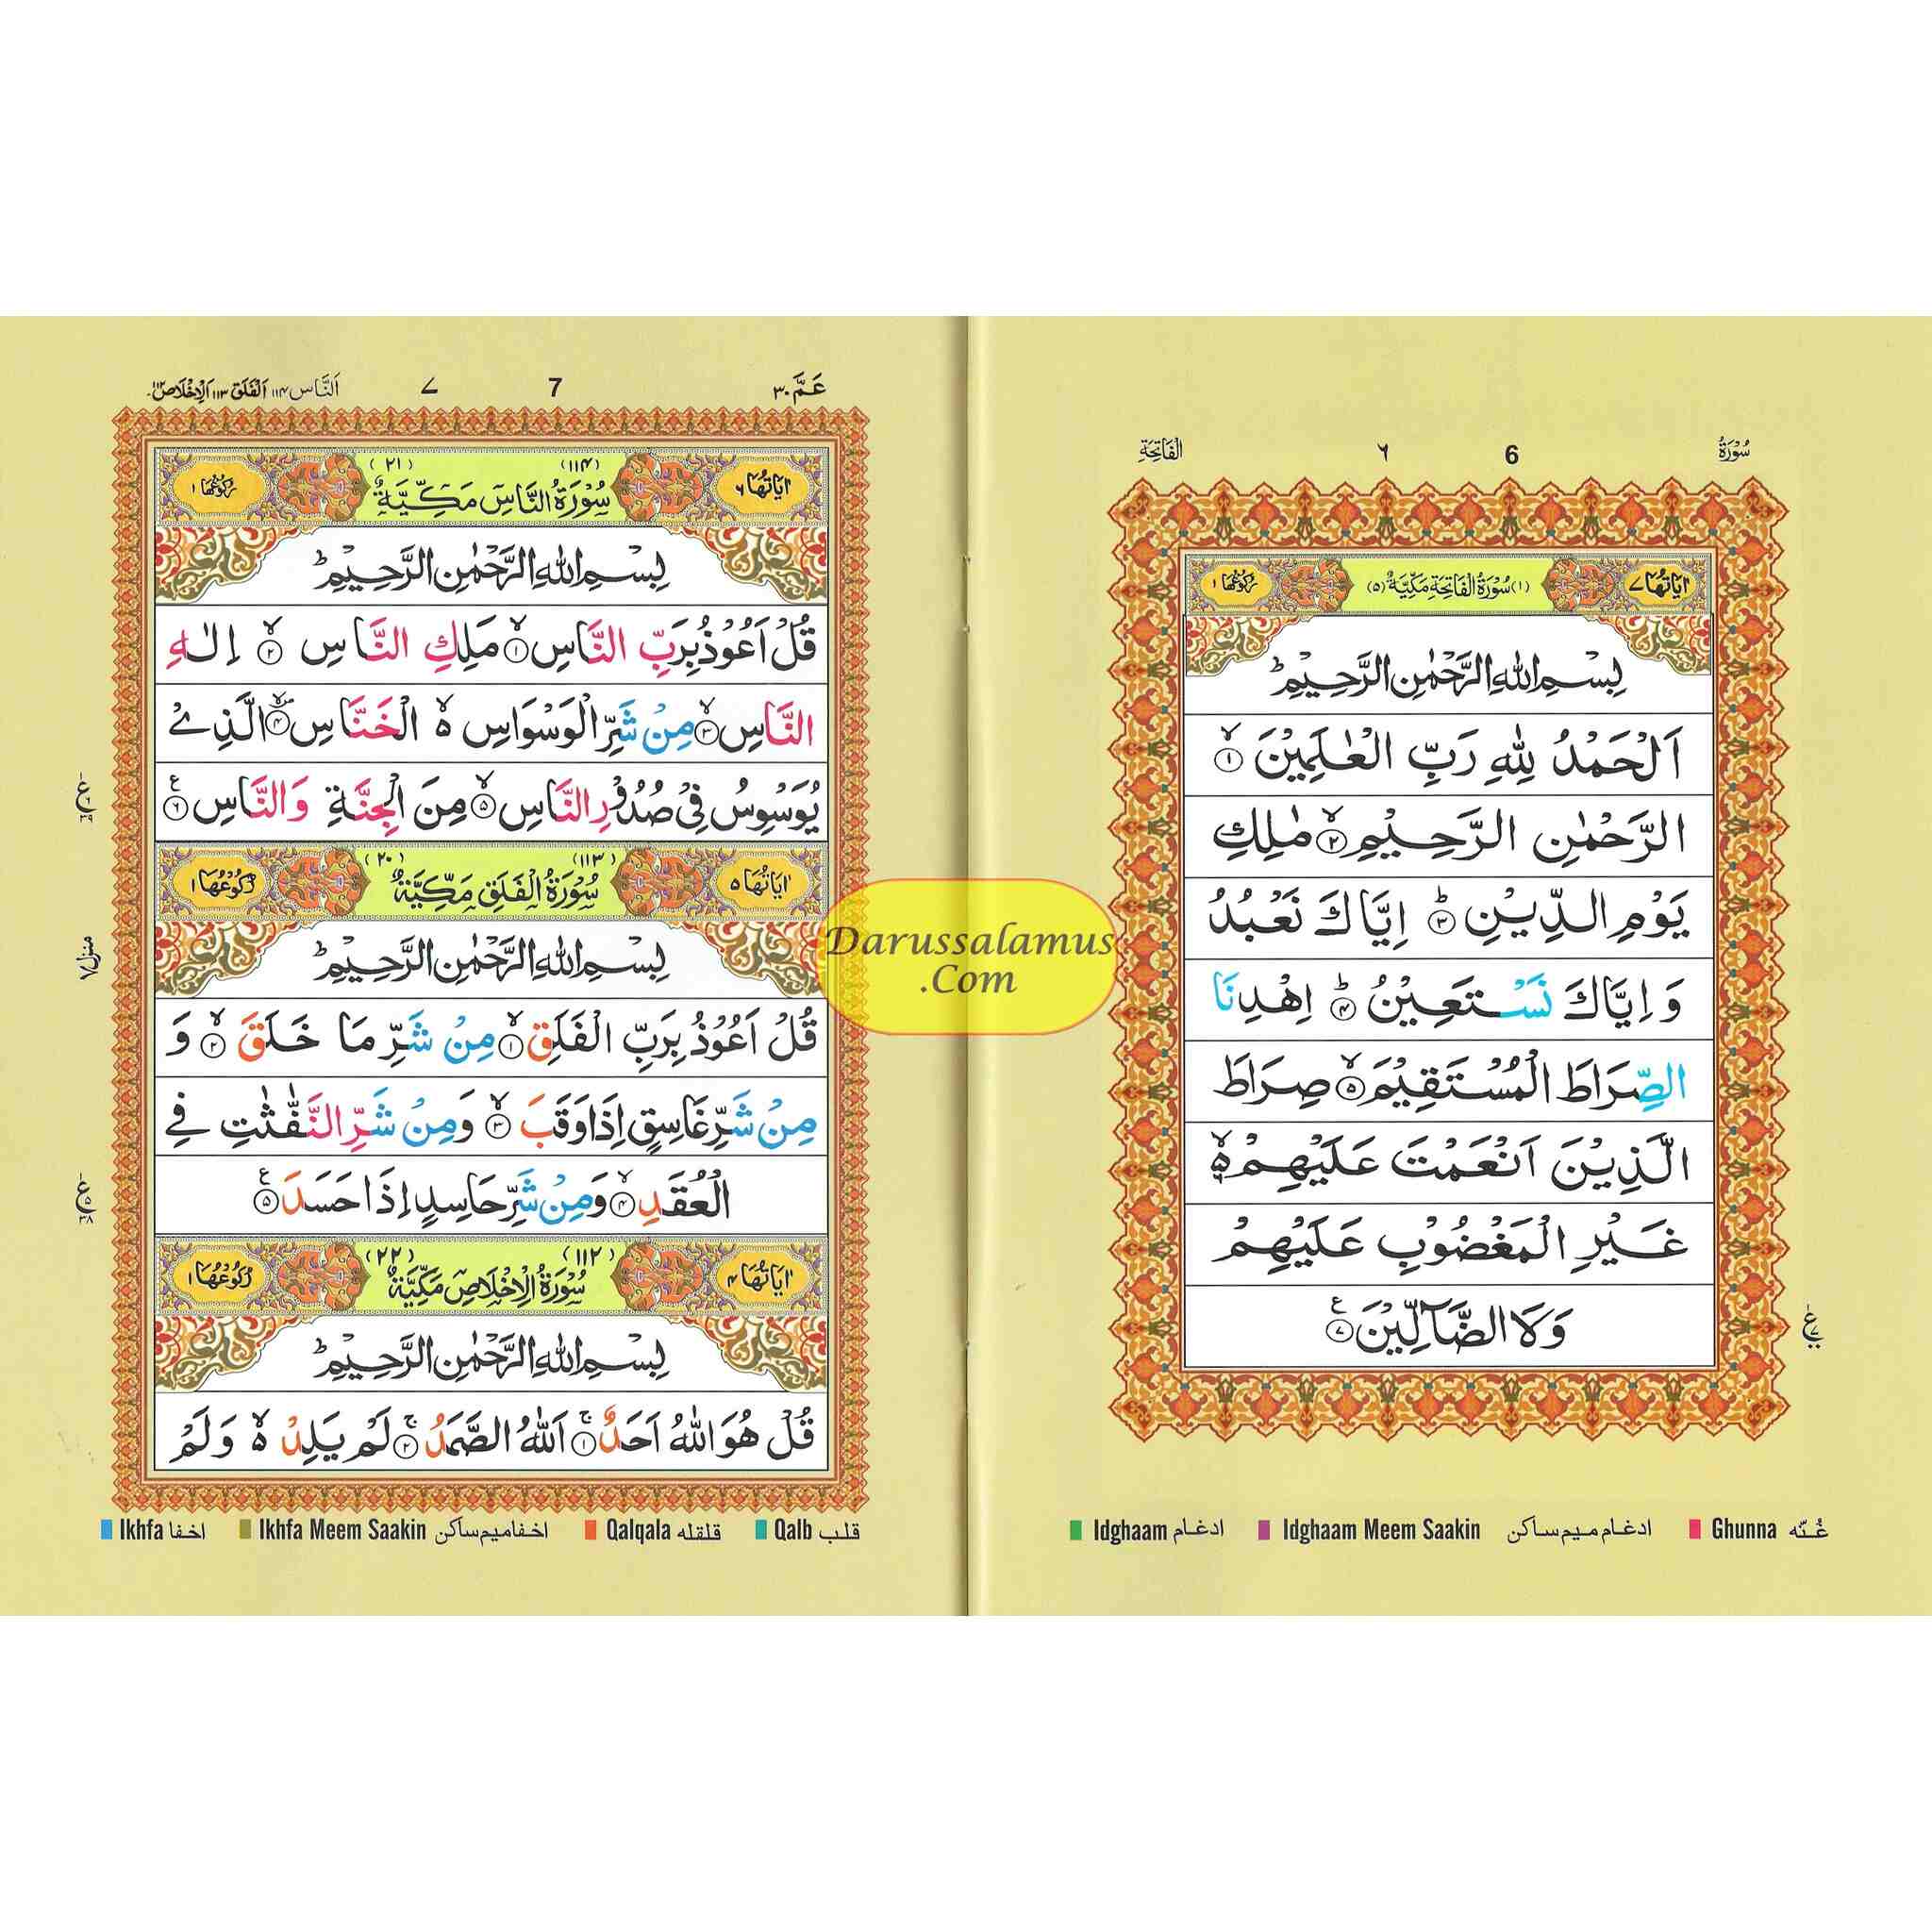 سُوْرَةُ 6 ٦ الْفَاتِحَةِ
اٰيَاتُهَا ٧ (١) سُوْرَةُ الْفَاتِحَةِ مَكِّيَّةٌ (٥) رُكُوْعُهَا ١
بِسْمِ اللّٰهِ الرَّحْمٰنِ الرَّحِيْمِ ؕ
اَلْحَمْدُ لِلّٰهِ رَبِّ الْعٰلَمِيْنَ ۙ ١
الرَّحْمٰنِ الرَّحِيْمِ ۙ ٢ مٰلِكِ
يَوْمِ الدِّيْنِ ؕ ٣ اِيَّاكَ نَعْبُدُ
وَ اِيَّاكَ نَسْتَعِيْنُ ؕ ٤ اِهْدِنَا
الصِّرَاطَ الْمُسْتَقِيْمَ ۙ ٥ صِرَاطَ
الَّذِيْنَ اَنْعَمْتَ عَلَيْهِمْ ۙ۬ ٦
غَيْرِ الْمَغْضُوْبِ عَلَيْهِمْ
وَلَا الضَّآلِّيْنَ ع ٧
Idghaam ادغام Idghaam Meem Saakin ادغام میم ساکن Ghunna غُنّه
عَمَّ ٣٠ 7 ٧ اَلنَّاس ١١٤ اَلْفَلَق ١١٣ اَلْاِخْلَاص ١١٢
اٰيَاتُهَا ٦ (١١٤) سُوْرَةُ النَّاسِ مَكِّيَّةٌ (٢١) رُكُوْعُهَا ١
بِسْمِ اللّٰهِ الرَّحْمٰنِ الرَّحِيْمِ ؕ
قُلْ اَعُوْذُ بِرَبِّ النَّاسِ ۙ ١ مَلِكِ النَّاسِ ۙ ٢ اِلٰهِ
النَّاسِ ۙ ٣ مِنْ شَرِّ الْوَسْوَاسِ ۙ الْخَنَّاسِ ٤ الَّذِيْ
يُوَسْوِسُ فِيْ صُدُوْرِ النَّاسِ ۙ ٥ مِنَ الْجِنَّةِ وَالنَّاسِ ع ٦
اٰيَاتُهَا ٥ (١١٣) سُوْرَةُ الْفَلَقِ مَكِّيَّةٌ (٢٠) رُكُوْعُهَا ١
بِسْمِ اللّٰهِ الرَّحْمٰنِ الرَّحِيْمِ ؕ
قُلْ اَعُوْذُ بِرَبِّ الْفَلَقِ ۙ ١ مِنْ شَرِّ مَا خَلَقَ ۙ ٢ وَ
مِنْ شَرِّ غَاسِقٍ اِذَا وَقَبَ ۙ ٣ وَمِنْ شَرِّ النَّفّٰثٰتِ فِي
الْعُقَدِ ۙ ٤ وَمِنْ شَرِّ حَاسِدٍ اِذَا حَسَدَ ع ٥
اٰيَاتُهَا ٤ (١١٢) سُوْرَةُ الْاِخْلَاصِ مَكِّيَّةٌ (٢٢) رُكُوْعُهَا ١
بِسْمِ اللّٰهِ الرَّحْمٰنِ الرَّحِيْمِ ؕ
قُلْ هُوَ اللّٰهُ اَحَدٌ ۚ ١ اَللّٰهُ الصَّمَدُ ۚ ٢ لَمْ يَلِدْ ۙ وَلَمْ
منزل ٧
Ikhfa اخفا Ikhfa Meem Saakin اخفا میم ساکن Qalqala قلقله Qalb قلب
Darussalamus
.Com